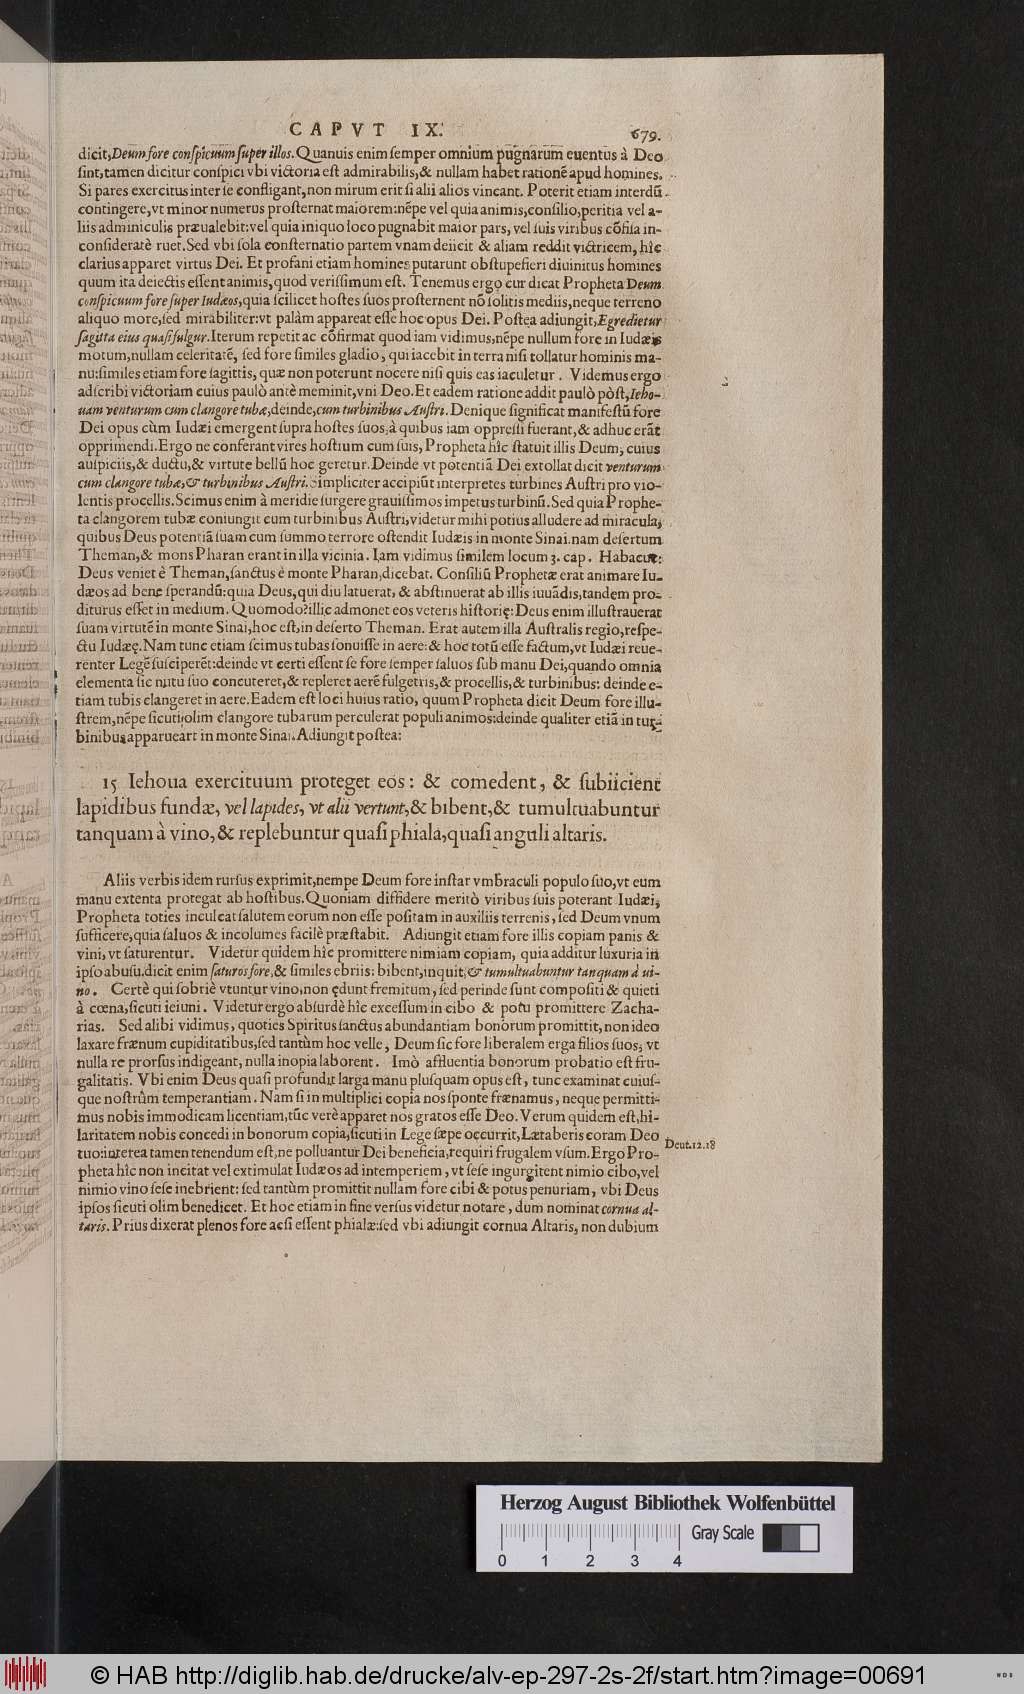 CAPVT IX.
679.
dicit, Deum fore conſpicuum ſuper illos. Quanuis enim ſemper omnium pugnarum euentus à Deo
ſint, tamen dicitur conſpici vbi victoria eſt admirabilis, & nullam habet rationẽ apud homines.
Si pares exercitus inter ſe confligant, non mirum erit ſi alii alios vincant. Poterit etiam interdũ
contingere, vt minor numerus proſternat maiorem: nẽpe vel quia animis, conſilio, peritia vel a-
liis adminiculis præualebit: vel quia iniquo loco pugnabit maior pars, vel ſuis viribus cõfiſa in-
conſideratè ruet. Sed vbi ſola conſternatio partem vnam deiicit & aliam reddit victricem, hîc
clarius apparet virtus Dei. Et profani etiam homines putarunt obſtupefieri diuinitus homines
quum ita deiectis eſſent animis, quod veriſſimum eſt. Tenemus ergo cur dicat Propheta Deum
conſpicuum fore ſuper Iudæos, quia ſcilicet hoſtes ſuos proſternent nõ ſolitis mediis, neque terreno
aliquo more, ſed mirabiliter: vt palàm appareat eſſe hoc opus Dei. Poſtea adiungit, Egredietur
ſagitta eius quaſi fulgur. Iterum repetit ac cõfirmat quod iam vidimus, nẽpe nullum fore in Iudæis
motum, nullam celeritatẽ, ſed fore ſimiles gladio, qui iacebit in terra niſi tollatur hominis ma-
nu: ſimiles etiam fore ſagittis, quæ non poterunt nocere niſi quis eas iaculetur. Videmus ergo
adſcribi victoriam cuius paulò antè meminit, vni Deo. Et eadem ratione addit paulò pòſt, Ieho-
uam venturum cum clangore tubæ, deinde, cum turbinibus Auſtri. Denique ſignificat manifeſtũ fore
Dei opus cùm Iudæi emergent ſupra hoſtes ſuos, à quibus iam oppreſſi fuerant, & adhuc erãt
opprimendi. Ergo ne conferant vires hoſtium cum ſuis, Propheta hîc ſtatuit illis Deum, cuius
auſpiciis, & ductu, & virtute bellũ hoc geretur. Deinde vt potentiã Dei extollat dicit venturum
cum clangore tubæ, & turbinibus Auſtri. Simpliciter accipiũt interpretes turbines Auſtri pro vio-
lentis procellis. Scimus enim à meridie ſurgere grauiſſimos impetus turbinũ. Sed quia Prophe-
ta clangorem tubæ coniungit cum turbinibus Auſtri, videtur mihi potius alludere ad miracula,
quibus Deus potentiã ſuam cum ſummo terrore oſtendit Iudæis in monte Sinai. nam deſertum
Theman, & mons Pharan erant in illa vicinia. Iam vidimus ſimilem locum 3. cap. Habacuc:
Deus veniet è Theman, ſanctus è monte Pharan, dicebat. Conſiliũ Prophetæ erat animare Iu-
dæos ad bene ſperandũ: quia Deus, qui diu latuerat, & abſtinuerat ab illis iuuãdis, tandem pro-
diturus eſſet in medium. Quomodo? illic admonet eos veteris hiſtorię: Deus enim illuſtrauerat
ſuam virtutẽ in monte Sinai, hoc eſt, in deſerto Theman. Erat autem illa Auſtralis regio, reſpe-
ctu Iudæę. Nam tunc etiam ſcimus tubas ſonuiſſe in aere: & hoc totũ eſſe factum, vt Iudæi reue-
renter Legẽ ſuſciperẽt: deinde vt certi eſſent ſe fore ſemper ſaluos ſub manu Dei, quando omnia
elementa ſic nutu ſuo concuteret, & repleret aerẽ fulgetris, & procellis, & turbinibus: deinde e-
tiam tubis clangeret in aere. Eadem eſt loci huius ratio, quum Propheta dicit Deum fore illu-
ſtrem, nẽpe ſicuti olim clangore tubarum perculerat populi animos: deinde qualiter etiã in tur-
binibus apparueart in monte Sinai. Adiungit poſtea:
15 Iehoua exercituum proteget eos: & comedent, & ſubiicient
lapidibus fundæ, vel lapides, vt alii vertunt, & bibent, & tumultuabuntur
tanquam à vino, & replebuntur quaſi phiala, quaſi anguli altaris.
Aliis verbis idem rurſus exprimit, nempe Deum fore inſtar vmbraculi populo ſuo, vt eum
manu extenta protegat ab hoſtibus. Quoniam diffidere meritò viribus ſuis poterant Iudæi,
Propheta toties inculcat ſalutem eorum non eſſe poſitam in auxiliis terrenis, ſed Deum vnum
ſufficere, quia ſaluos & incolumes facilè præſtabit. Adiungit etiam fore illis copiam panis &
vini, vt ſaturentur. Videtur quidem hîc promittere nimiam copiam, quia additur luxuria in
ipſo abuſu. dicit enim ſaturos fore, & ſimiles ebriis: bibent, inquit, & tumultuabuntur tanquam à vi-
no. Certè qui ſobriè vtuntur vino, non ędunt fremitum, ſed perinde ſunt compoſiti & quieti
à cœna, ſicuti ieiuni. Videtur ergo abſurdè hîc exceſſum in cibo & potu promittere Zacha-
rias. Sed alibi vidimus, quoties Spiritus ſanctus abundantiam bonorum promittit, non ideo
laxare frænum cupiditatibus, ſed tantùm hoc velle, Deum ſic fore liberalem erga filios ſuos, vt
nulla re prorſus indigeant, nulla inopia laborent. Imò affluentia bonorum probatio eſt fru-
galitatis. Vbi enim Deus quaſi profundit larga manu pluſquam opus eſt, tunc examinat cuiuſ-
que noſtrûm temperantiam. Nam ſi in multiplici copia nos ſponte frænamus, neque permitti-
mus nobis immodicam licentiam, tũc verè apparet nos gratos eſſe Deo. Verum quidem eſt, hi-
laritatem nobis concedi in bonorum copia, ſicuti in Lege ſæpe occurrit, Lætaberis coram Deo
Deut. 12. 18
tuo: interea tamen tenendum eſt, ne polluantur Dei beneficia, requiri frugalem vſum. Ergo Pro-
pheta hîc non incitat vel extimulat Iudæos ad intemperiem, vt ſeſe ingurgitent nimio cibo, vel
nimio vino ſeſe inebrient: ſed tantùm promittit nullam fore cibi & potus penuriam, vbi Deus
ipſos ſicuti olim benedicet. Et hoc etiam in fine verſus videtur notare, dum nominat cornua al-
taris. Prius dixerat plenos fore acſi eſſent phialæ: ſed vbi adiungit cornua Altaris, non dubium
Herzog August Bibliothek Wolfenbüttel
Gray Scale
0 1 2 3 4
© HAB http://diglib.hab.de/drucke/alv-ep-297-2s-2f/start.htm?image=00691